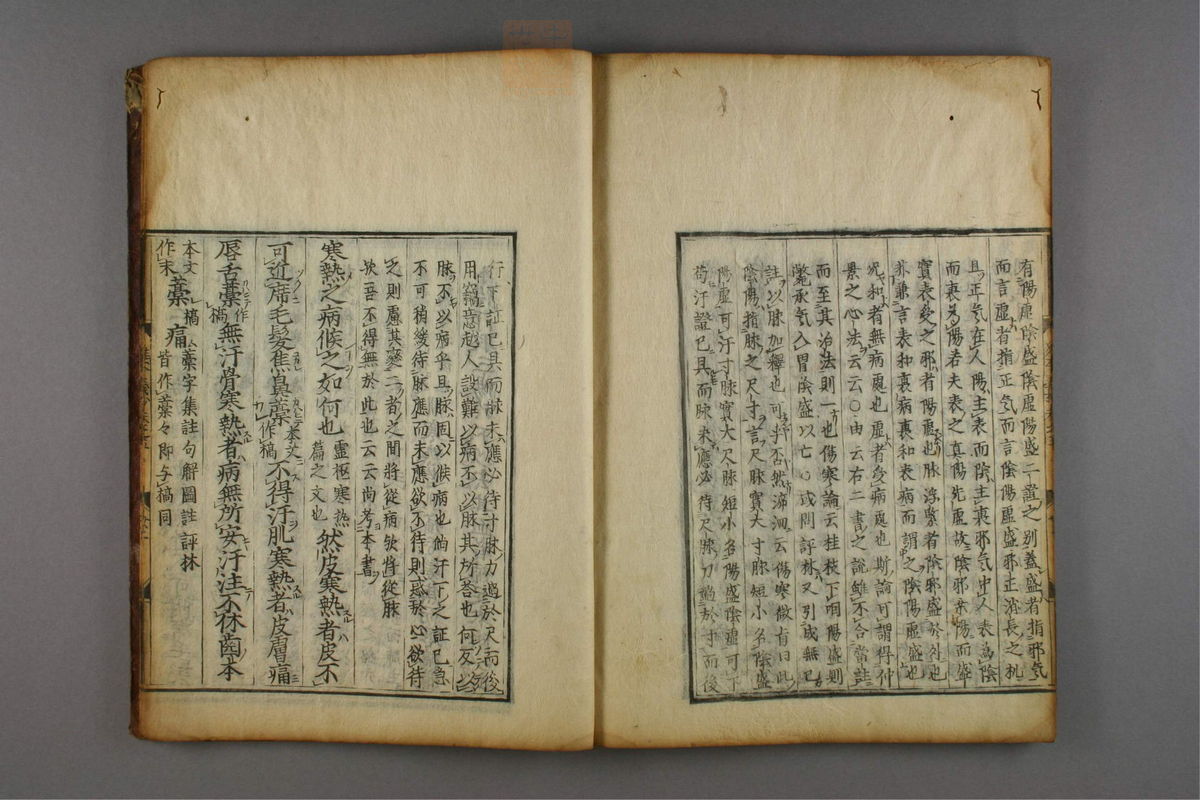 有陽虛陰盛陰虛陽盛二證之别蓋盛者指邪気
而言虛者指正気而言陰陽虛盛邪正消長之机
且正気在人陽主表而陰主裏邪気中人表為陰
而裏為陽若夫表之真陽先虛故陰邪乘陽而盛
實表受之邪者陽虛也脉浮緊者陰邪盛於外也
况和者無病處也虛者受病處也斯論可謂得仲
景之心法云云〇由云右二書之說雖不合當註
而至其治法則一也傷寒論云桂枝下咽陽盛則
斃承気入胃陰盛以亡〇或問評林又引成無已
註以脉加釋也可乎否然滑洄云傷寒微旨曰此
陰陽指脉之尺寸言尺脉實大寸脉短小名陰盛
陽虛可汗寸脉實大尺脉短小名陽盛陰虛可下
苟汗證已具而脉未應必待尺脉力過於寸而後
行下証已具而脉未應必待寸脉力過於尺而後
用竊意越人設難以病不以脉其所答也何反以
脉不以病乎且脉固以候病也倘汗下之証已急
不可稍緩待脉應而未應欲不待則惑於心欲待
之則慮其變二者之間將從病欤將從脉
欤吾不得無於此也云云尚考本書
寒熱之病候之如何也靈枢寒热
篇之文也然皮寒熱者皮不
可近席毛髮焦鼻藁本文
作槁不得汗肌寒熱者皮膚痛
唇舌藁作
槁無汗骨寒熱者病無所安汗注不休齒本
本文
作末藁槁痛藁字集註句解圖註評林
皆作藁々即与槁同